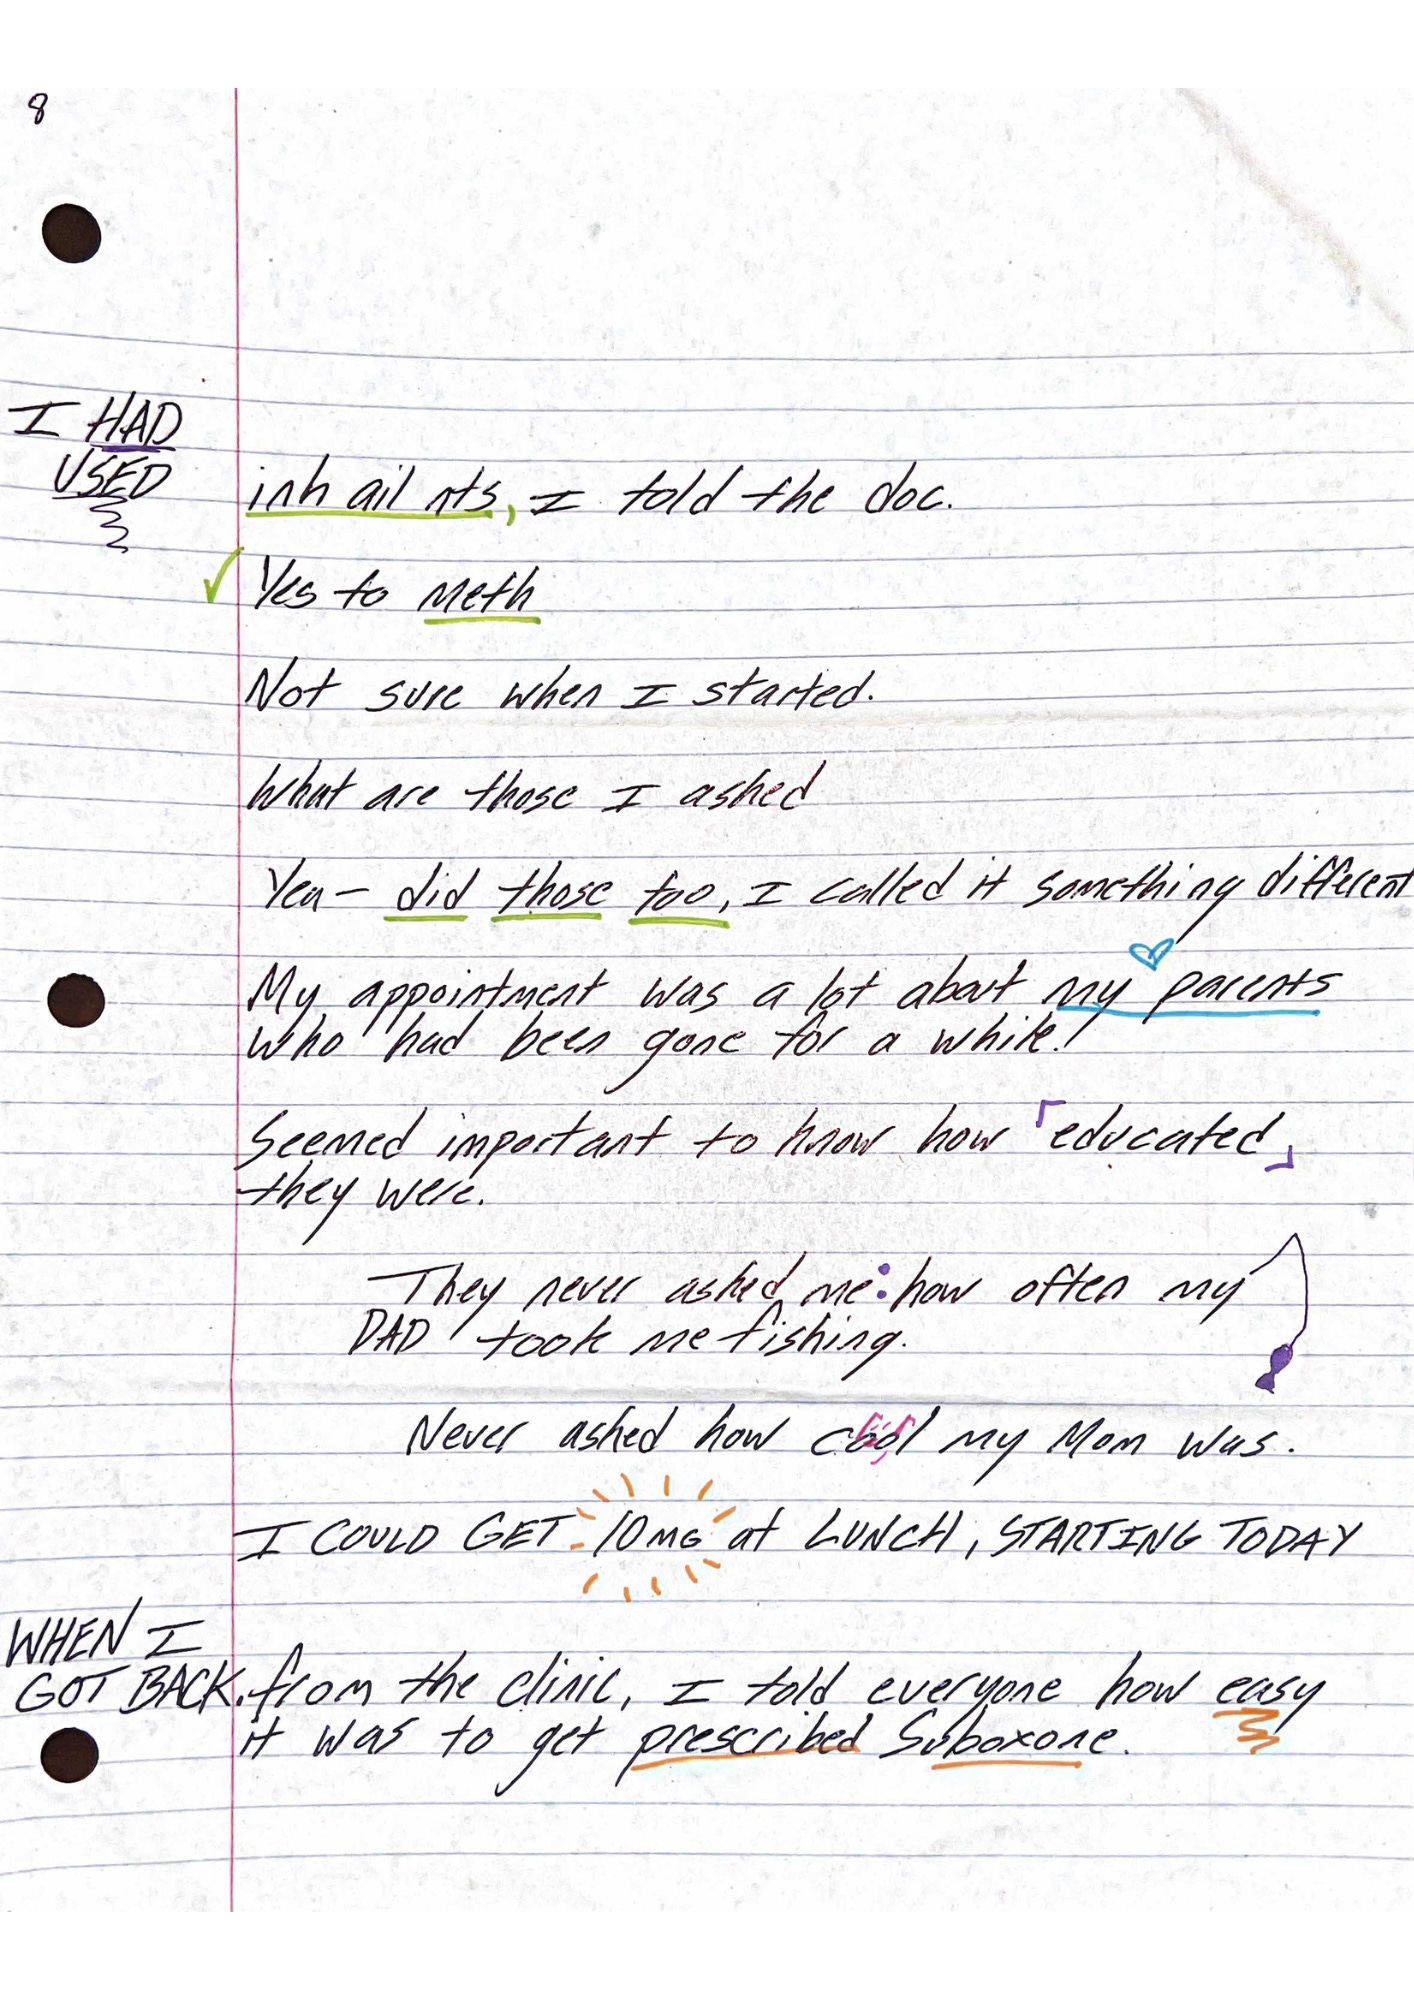 8
I HAD
USED
inhailnts, I told the doc.
Yes to meth
Not sure when I started.
What are those I asked
Yea- did those too, I called it something different
My appointment was a lot about my parents
who had been gone for a while.
Seemed important to know how 「educated」
they were.
They never asked me: how often my
DAD took me fishing.
Never asked how cool my Mom was.
I COULD GET 10MG at LUNCH, STARTING TODAY
WHEN I
GOT BACK. from the clinic, I told everyone how easy
it was to get prescribed Suboxone.